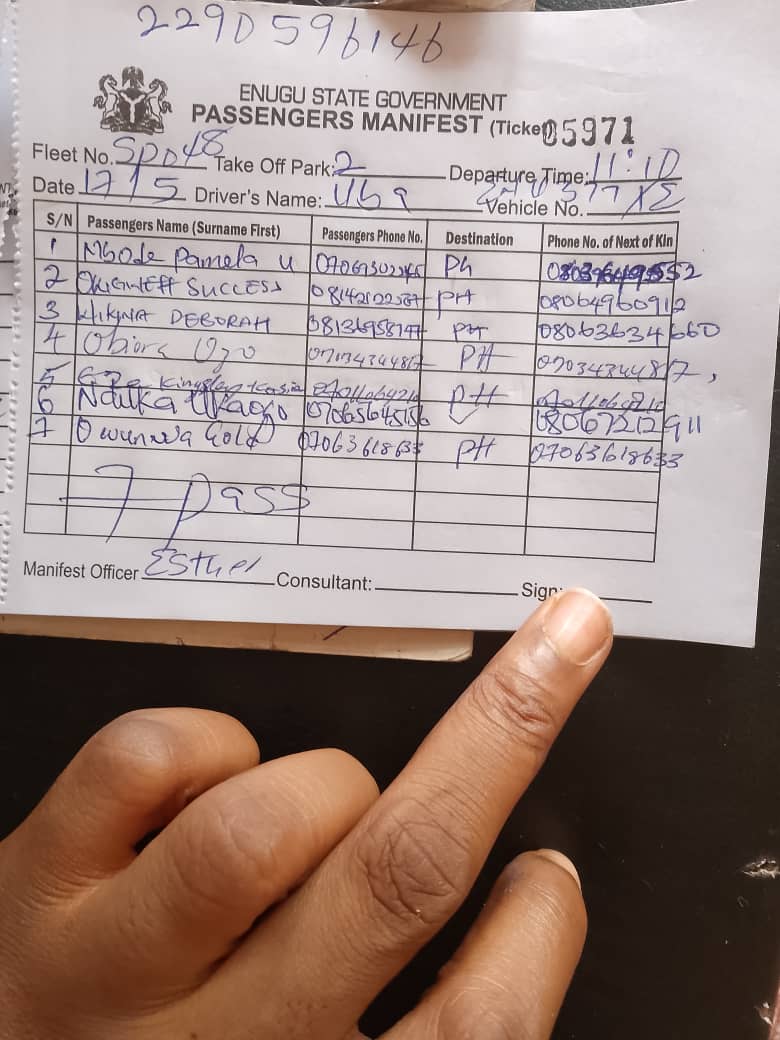 2290596146
ENUGU STATE GOVERNMENT
PASSENGERS MANIFEST (Ticket 05971
Fleet No. SPD 48 Take Off Park: 2 Departure Time: 11:10
Date 17/5 Driver's Name: Uba Vehicle No. XE
S/N Passengers Name (Surname First) Passengers Phone No. Destination Phone No. of Next of Kin
1 Mbode Pamela U PH
2 SUCCESS PH 08064960912
3 DEBORAH PH 08063634660
4 Obiora Ugo 07034344817 PH 07034344817,
5 Eze Kingsley PH
6 Nduka 07065645156 08067212911
7 Owunna Gold 07063618633 PH 07063618633
7 pass
Manifest Officer Esther Consultant: Sign: